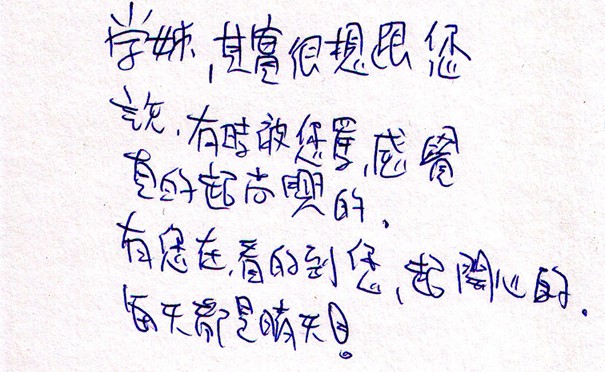 学姊,其實很想跟您
說,有時被您罵,感覺
真的超高興的,
有您在,看的到您,超開心的.
每天都是晴天!